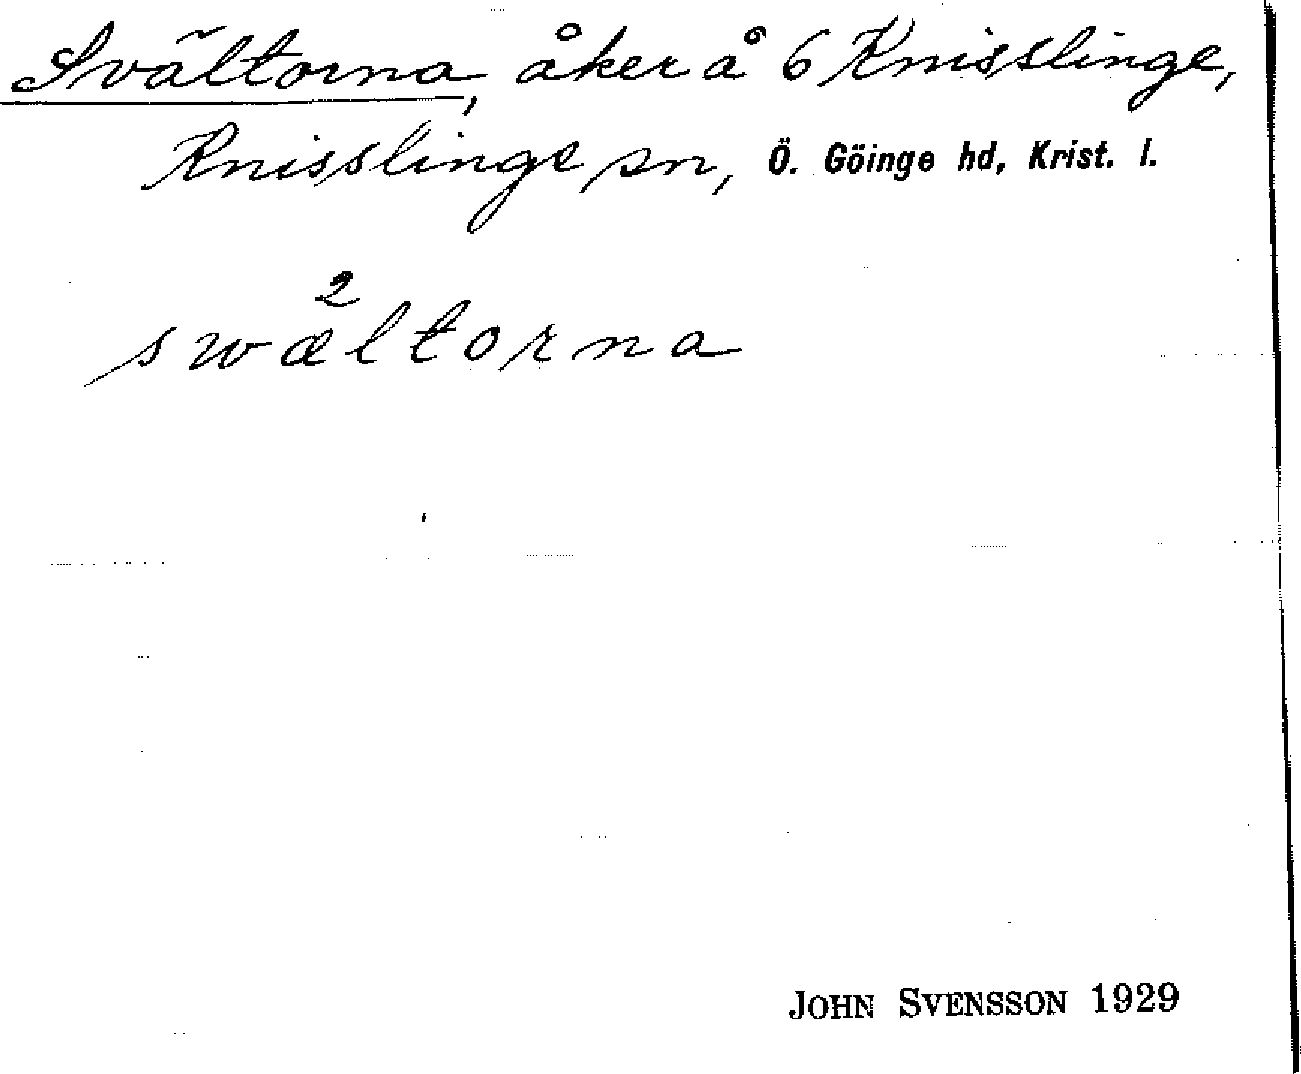 Svältorna, åker å 6 Knisslinge,
Knisslinge sn, Ö. Göinge hd, Krist. l.
2
swæltorna
JOHN SVENSSON 1929